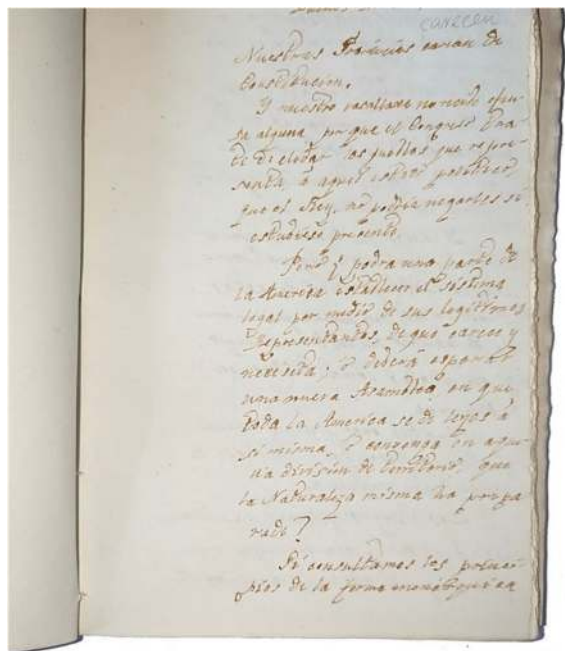 carecen
Nuestras Provincias carian de
Constitucion.
Y nuestro vasallaxe no recive ofen-
sa alguna por que el Congreso tra-
te de elevar los pueblos que repre-
senta á aquel estado politico,
que el Rey no podria negarles si
estubiese presente.
Pero ¿podra una parte de
la America establecer el sistema
legal por medio de sus legitimos
representantes, de que carece y
necesita; ó deberá esperar
una nueva Asamblea en que
toda la America se dé leyes á
sí misma, ó convenga en aque-
lla division de territorio que
la Naturaleza misma ha prepa
rado?
Si consultamos los princi-
pios de la forma monárquica